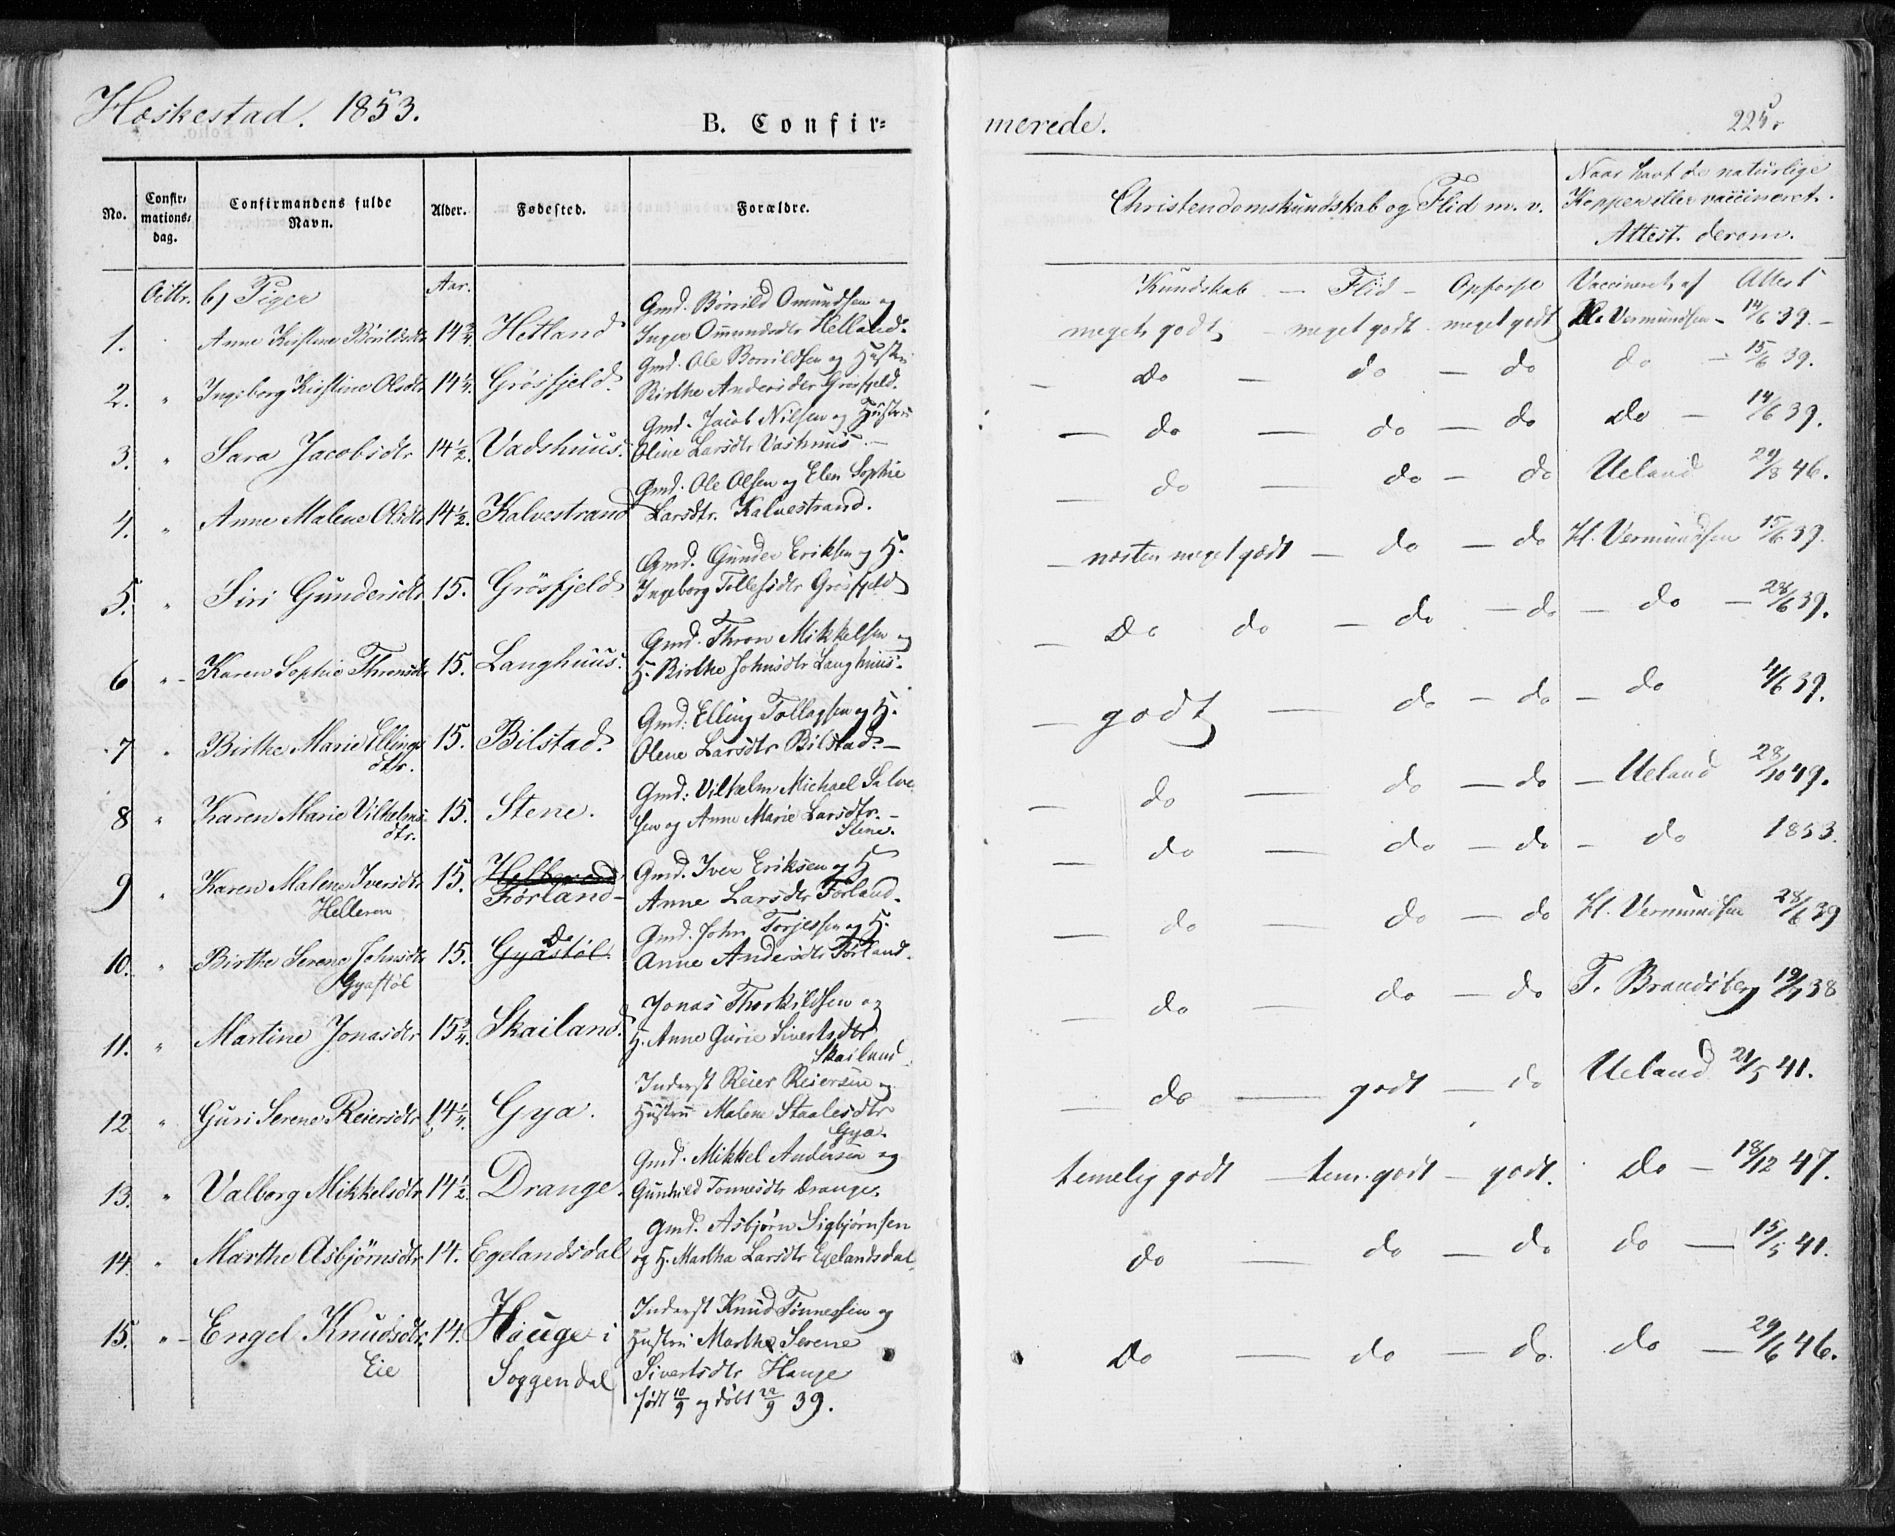 Heskestad. 1853.
B. Confir=
merede.
225.
No.
Confir-
mations-
dag.
Confirmandens fulde
Navn.
Alder.
Fødested.
Forældre.
Christendomskundskab og Flid m. v.
Naar havt de naturlige
Kopper eller vaccineret.
Attest derom.
Octbr. b) Piger Aar.
Kundskab — Flid — Opførse Vaccineret af Attest
Gmd. Bonild Omundsen og
1. Anne Kirstine Bonildsdtr 14 3/4 Hetland Inger Ommundsdtr Hetland. meget godt — meget godt meget godt H. Vermundsen — 14/6 39. —
Gmd. Ole Bonildsen og Hustru
2. " Ingeborg Kirstine Olsdtr 14 1/4. Grösfjeld. Birthe Andersdtr Grösfjeld. — Do — do — do do — 15/6 39.
Gmd. Jacob Nilsen og Hustru
3. " Sara Jacobsdtr 14 1/2. Vadshuus. Oline Larsdtr Vashuus. — — do — do — do Do — 14/6 39.
Gmd. Ole Olsen og Elen Sophie
4. " Anne Malene Olsdtr 14 1/2. Kalvestrand Larsdtr. Kalvestrand. — do — do — do Ueland 29/8 46.
Gmd. Gunder Eriksen og H.
5. " Siri Gundersdtr 15. Grösfjeld Ingeborg Tollefsdtr Grösfjeld — næsten meget godt — do — do H. Vermundsen 15/6 39.
Gmd. Thron Mikkelsen og
6 " - Karen Sophie Thronsdtr 15. Langhuus. H. Birthe Johnsdtr Langhuus. — Do do — do — do — do — 28/6 39.
Gmd. Elling Tollagsen og H.
7 " Birthe Marie Ellings 15. Bilstad. Olene Larsdtr Bilstad. — — godt — do — do — do 4/6 39.
dtr.
Gmd: Vilhelm Michael Salve
8 " Karen Marie Vilhelms 15. Stene. sen og Anne Marie Larsdtr. — — do — do — do — Ueland 28/10 49.
dtr. Stene.
Helleren Gmd. Iver Eriksen og H
9 " Karen Malene Iversdtr 15. Førland — Anne Larsdtr Førland. — do — do — do — do 1853.
Helleren
Gmd. John Torjessen og H.
Do
10. " Birthe Serene Johnsdtr 15. Gyastøl. Anne Andersdtr Førland. — do — do — do H. Vermundsen 28/6 39
Gyastøl
Jonas Thorkildsen og
11. " Martine Jonasdtr 15 3/4. Skailand. H. Anne Gurie Sivertsdtr — do — do — do T. Brandsberg 19/7 38
Skailand.
Inderst Reier Reiersen og
12. " Guri Serene Reiersdtr 14 1/4. Gya. Hustru Malene Staalesdtr — do — godt — do Ueland 21/5 41.
Gya.
Gmd. Mikkel Andersen og
13. " Valborg Mikkelsdtr 14 1/2. Drange. Gunhild Tonnesdtr Drange. temelig godt — tem. godt — godt. Do — 18/12 47.
Gmd. Asbjørn Sigbjørnsen
14. " Marthe Asbjørnsdtr 14. Egelandsdal og H. Martha Larsdtr Egelandsdal. do — do — do do — 15/5 41.
Inderst Knud Tönnessen og
15. " - Engel Knudsdtr. 14. Hauge i Hustru Marthe Serene Do — do — do do — 29/6 46.
Eie Soggendal Sivertsdtr Hauge
født 10/9 og døbt 22/9 39.